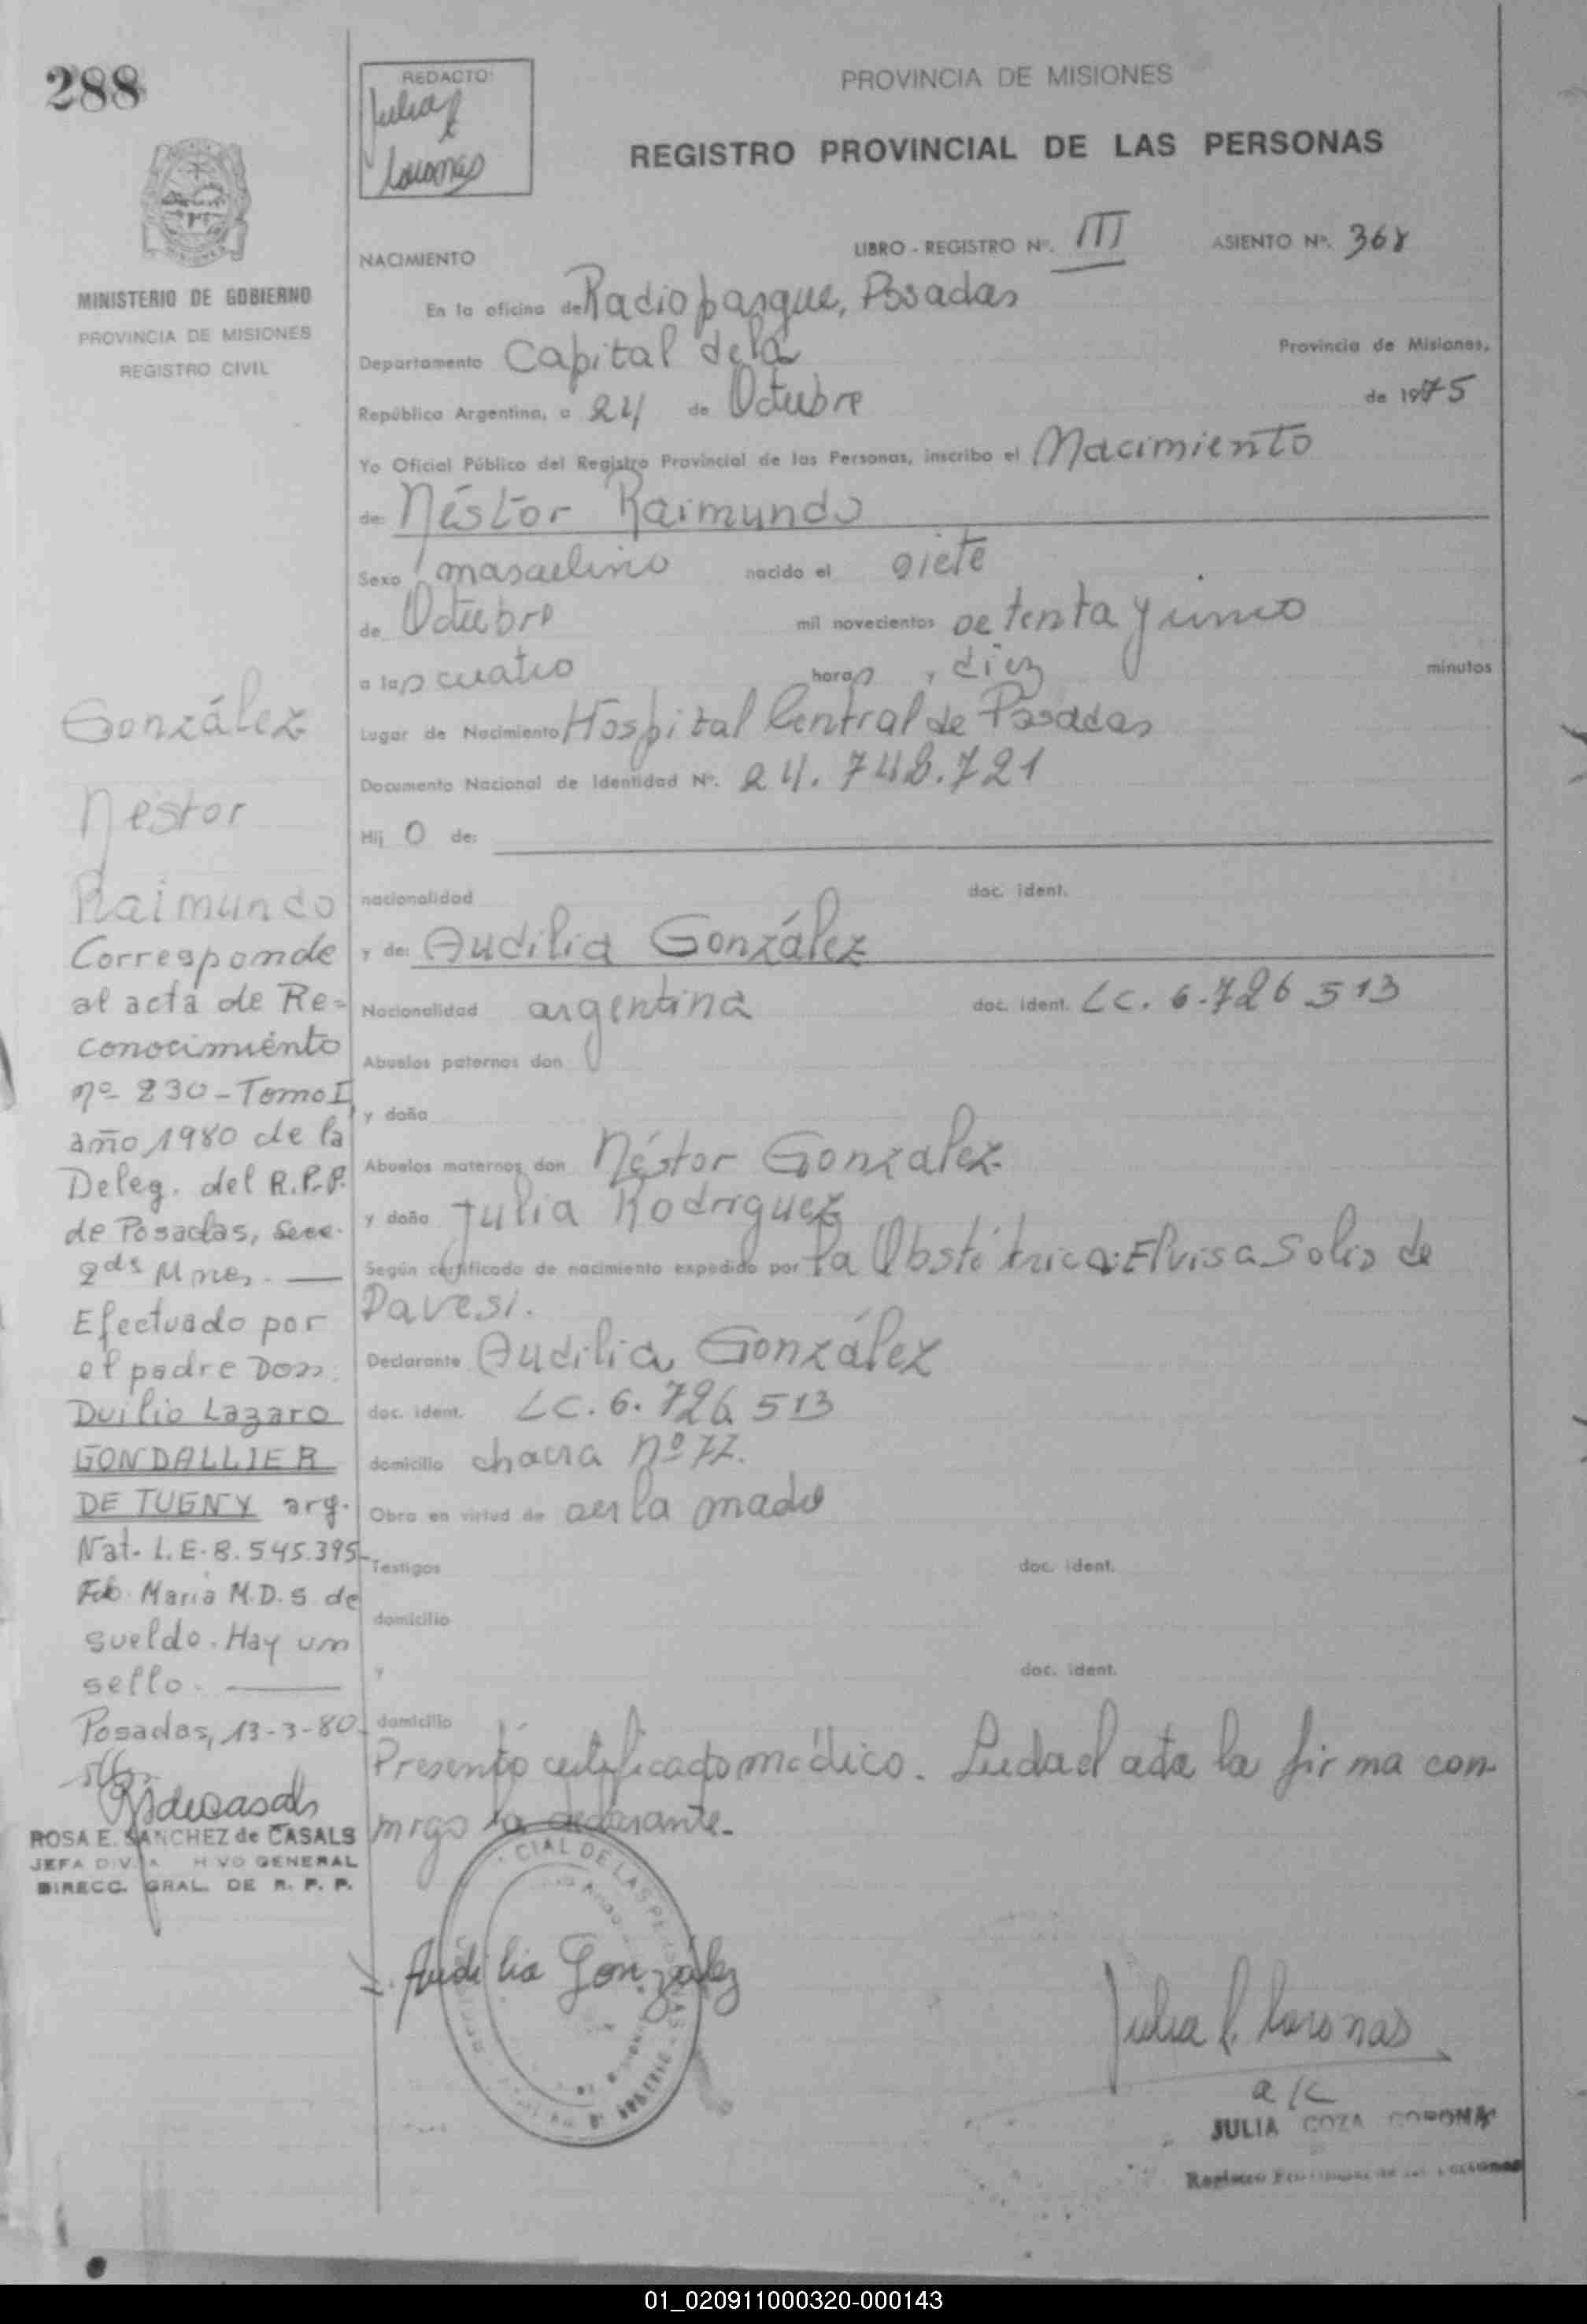 288
REDACTO:
Julia C
Coronas
PROVINCIA DE MISIONES
REGISTRO PROVINCIAL DE LAS PERSONAS
NACIMIENTO
LIBRO - REGISTRO Nº. III
ASIENTO Nº. 368
MINISTERIO DE GOBIERNO
PROVINCIA DE MISIONES
REGISTRO CIVIL
En la oficina de Radioparque, Posadas
Departamento Capital de la Provincia de Misiones,
República Argentina, a 24 de Octubre de 1975
Yo Oficial Público del Registro Provincial de las Personas, inscribo el Nacimiento
de: Néstor Raimundo
Sexo masculino nacido el siete
de Octubre mil novecientos setenta y cinco
a las cuatro horas y diez minutos
Lugar de Nacimiento Hospital Central de Posadas
Documento Nacional de Identidad Nº. 24.748.721
Hij o de:
nacionalidad doc. ident.
y de: Audilia González
Nacionalidad argentina doc. ident. LC. 6.726 513
Abuelos paternos don
y doña
Abuelos maternos don Néstor Gonzalez
y doña Julia Rodríguez
Según certificado de nacimiento expedido por la Obstétrica: Elvisa Solis de
Pavesi.
Declarante Audilia González
doc. ident. LC. 6.726 513
domicilio chacra nº 77.
Obra en virtud de ser la madre
Testigos doc. ident.
domicilio
y doc. ident.
domicilio
Presentó certificado médico. Leída el acta la firma con
migo la declarante.
González
Néstor
Raimundo
Corresponde
al acta de Re=
conocimiento
nº 230 - Tomo I
año 1980 de la
Deleg. del R.P.P.
de Posadas, Secc.
2da Mnes. —
Efectuado por
el padre Don
Duilio Lazaro
GONDALLIER
DE TUGNY arg.
Nat. L.E. 8.545.395-
Fdo. Maria M.D.S. de
sueldo. Hay un
sello. —
Posadas, 13-3-80
ROSA E. SANCHEZ de CASALS
JEFA DIV. GENERAL
DIRECC. GRAL. DE R. P. P.
CIAL DE LAS PERSONAS
Audilia González
Julia C. Coronas
a/c
JULIA COZA CORONAS
Registro Provincial de las Personas
01_020911000320-000143